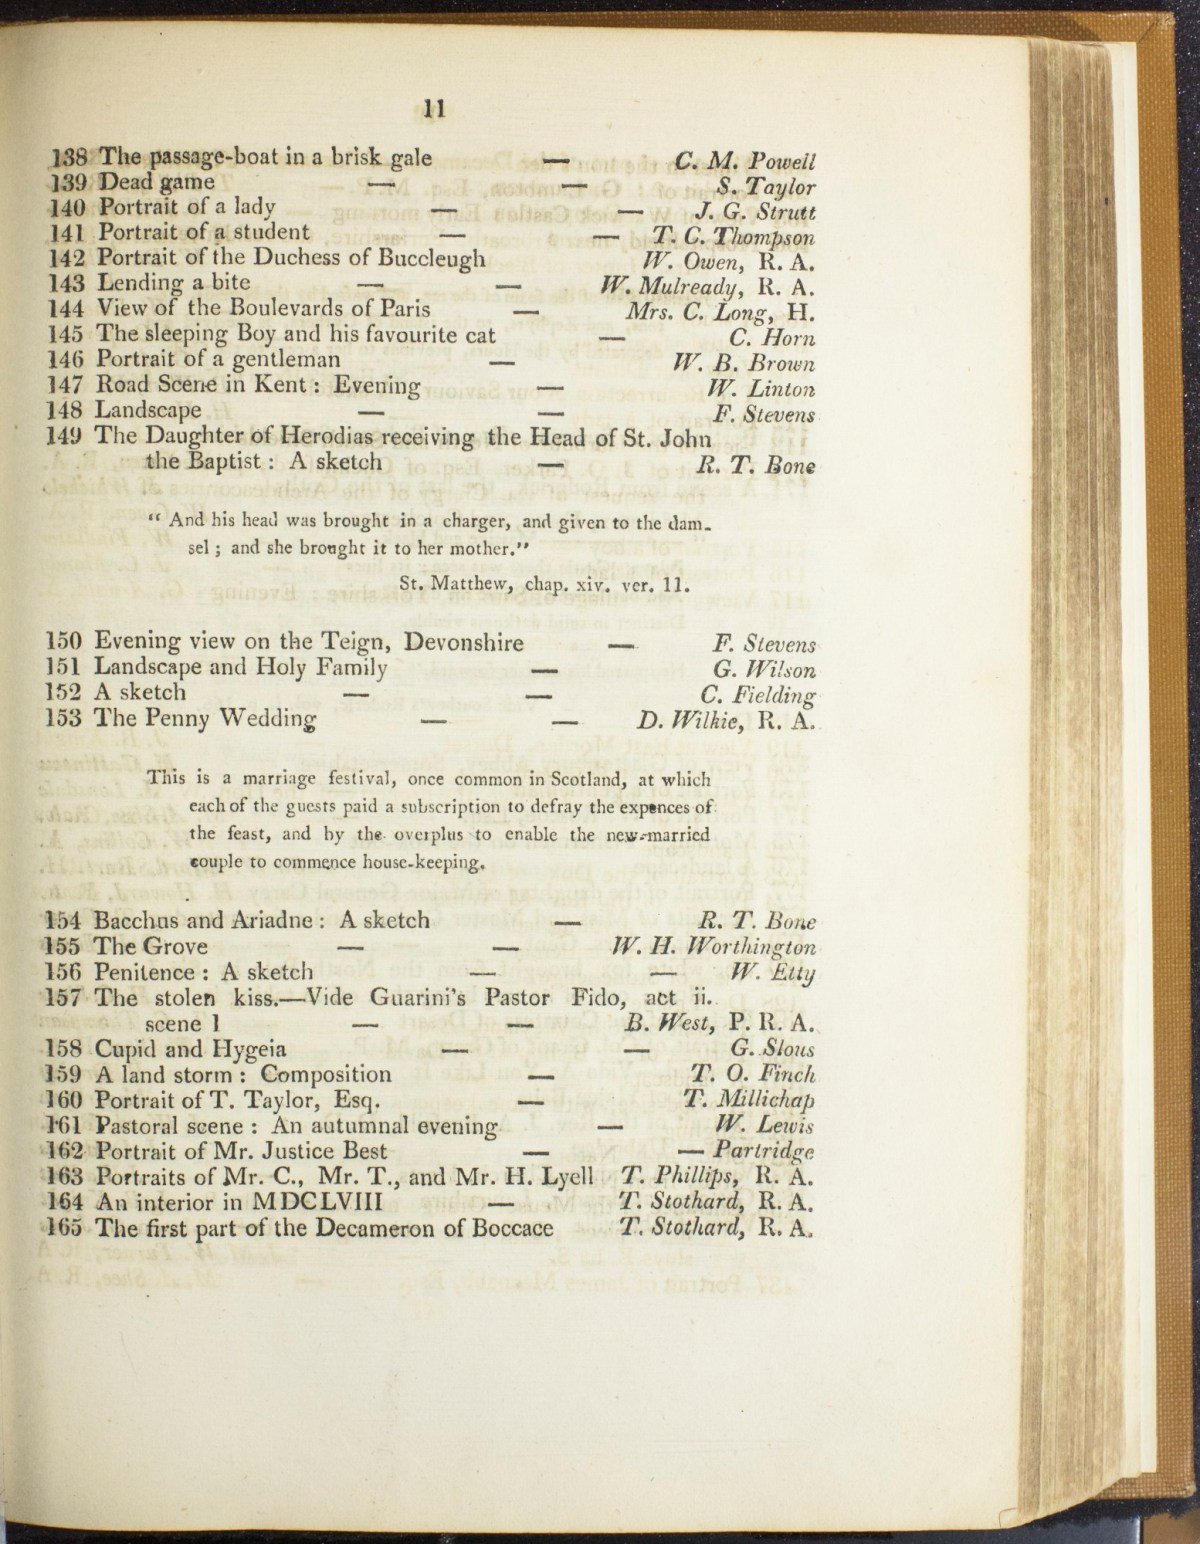 11
138 The passage-boat in a brisk gale — C. M. Powell
139 Dead game — — S. Taylor
140 Portrait of a lady — — J. G. Strutt
141 Portrait of a student — — T. C. Thompson
142 Portrait of the Duchess of Buccleugh W. Owen, R. A.
143 Lending a bite — — W. Mulready, R. A.
144 View of the Boulevards of Paris — Mrs. C. Long, H.
145 The sleeping Boy and his favourite cat — C. Horn
146 Portrait of a gentleman — W. B. Brown
147 Road Scene in Kent : Evening — W. Linton
148 Landscape — — F. Stevens
149 The Daughter of Herodias receiving the Head of St. John
the Baptist : A sketch — R. T. Bone
“ And his head was brought in a charger, and given to the dam-
sel ; and she brought it to her mother.”
St. Matthew, chap. xiv. ver. 11.
150 Evening view on the Teign, Devonshire — F. Stevens
151 Landscape and Holy Family — G. Wilson
152 A sketch — — C. Fielding
153 The Penny Wedding — — D. Wilkie, R. A.
This is a marriage festival, once common in Scotland, at which
each of the guests paid a subscription to defray the expences of
the feast, and by the overplus to enable the new-married
couple to commence house-keeping.
154 Bacchus and Ariadne : A sketch — R. T. Bone
155 The Grove — — W. H. Worthington
156 Penitence : A sketch — — W. Etty
157 The stolen kiss.—Vide Guarini's Pastor Fido, act ii.
scene 1 — — B. West, P. R. A.
158 Cupid and Hygeia — — G. Slous
159 A land storm : Composition — T. O. Finch
160 Portrait of T. Taylor, Esq. — T. Millichap
161 Pastoral scene : An autumnal evening — W. Lewis
162 Portrait of Mr. Justice Best — — Partridge
163 Portraits of Mr. C., Mr. T., and Mr. H. Lyell T. Phillips, R. A.
164 An interior in MDCLVIII — T. Stothard, R. A.
165 The first part of the Decameron of Boccace T. Stothard, R. A.